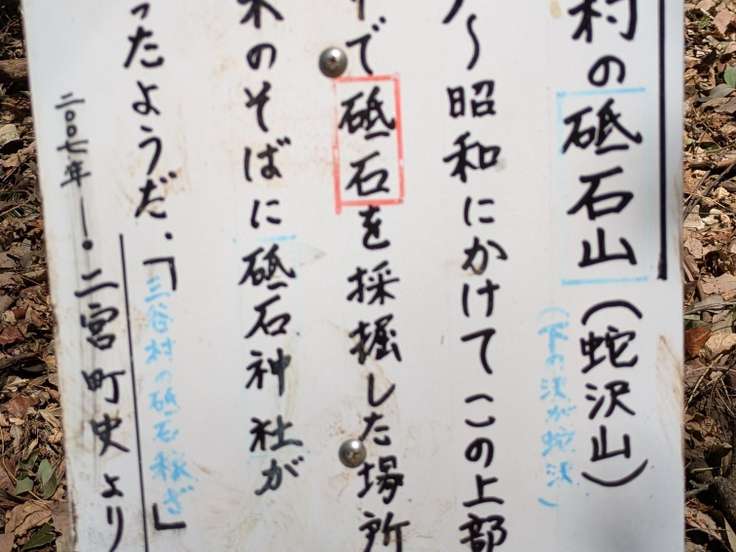 村の砥石山(蛇沢山)
(下の沢が蛇沢)
〜昭和にかけてこの上部
で砥石を採掘した場所
木のそばに砥石神社が
ったようだ、「三谷村の砥石稼ぎ」
二〇〇七年一・二宮町史より